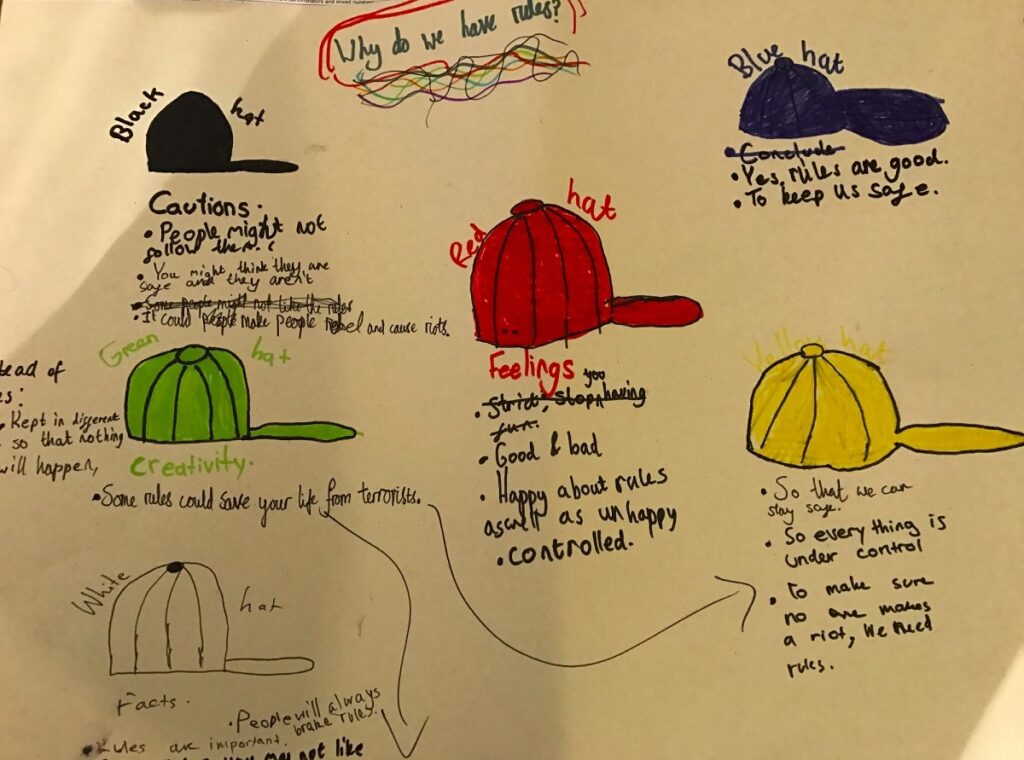 Why do we have rules?
Black hat
Cautions.
• People might not
follow them.
• You might think they are
safe and they aren't
• Some people might not like the rules
• It could people make people rebel and cause riots.
Blue hat
• Conclude
• Yes, rules are good.
• To keep us safe.
Red hat
Feelings
• Strict, stop you having
fun.
• Good & bad
• Happy about rules
aswell as unhappy
• controlled.
Green hat
Creativity.
• Some rules could save your life from terrorists.
Kept in different
so that nothing
will happen,
Yellow hat
• So that we can
stay safe.
• So everything is
under control
• To make sure
no one makes
a riot, We need
rules.
White hat
Facts.
• People will always
brake rules.
• Rules are important.
may not like